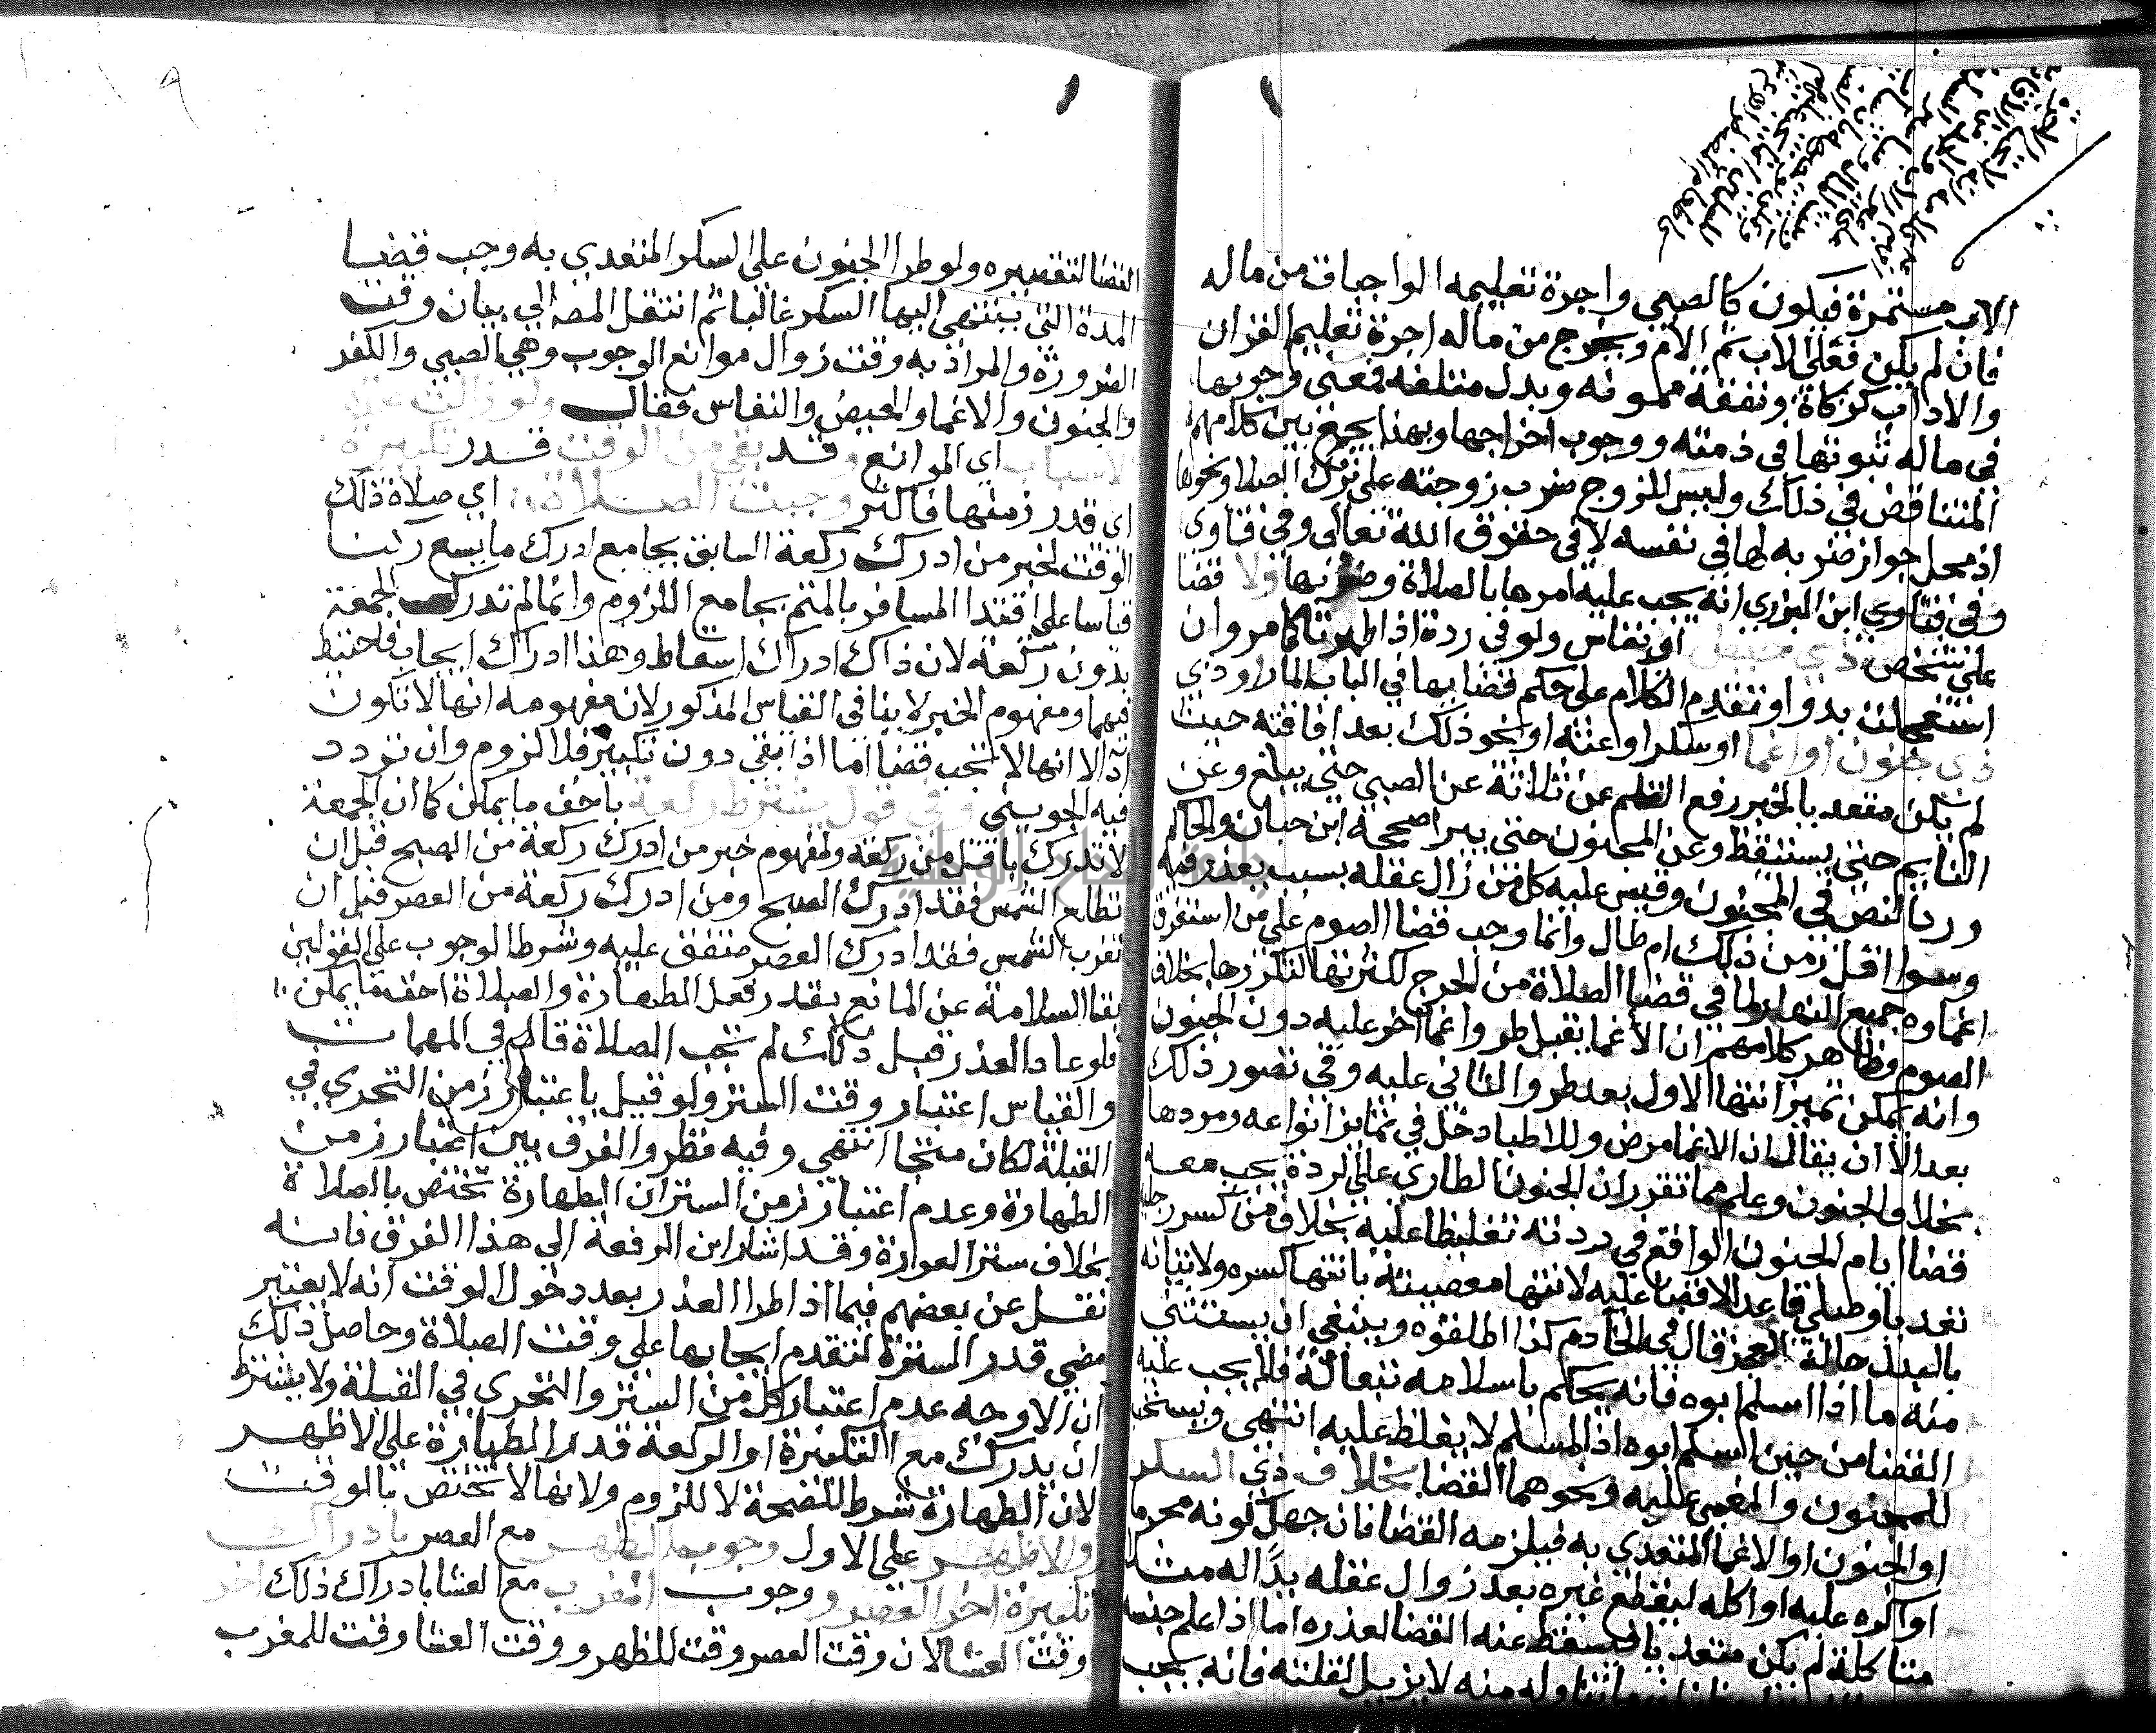 الامر مستمرة فيكون كالصبي واجرة تعليمه الواجبات من ماله
فان لم يكن فعلى الاب ثم الام ويخرج من ماله اجرة تعليم القران
والاداب كزكاة ونفقة ممونه وبدل متلفه فمعنى وجوبها
في ماله ثبوتها في ذمته ووجوب اخراجها وبهذا يجمع بين كلامهم
المتناقض في ذلك وليس للزوج ضرب زوجته على ترك الصلاة ونحوها
اذ محل جواز ضربه لها في نفسه لا في حقوق الله تعالى وفي فتاوى
وفي فتاوي ابن البزري انه يجب عليه امرها بالصلاة وضربها ولا قضا
على شخص ذي حيض او نفاس ولو في ردة اذا طهرتا كما مر وان
استعجلت بدوا وتقدم الكلام على حكم قضايها في الباب المار او ذي
ذي جنون او اغما او سكر او عته او نحو ذلك بعد افاقته حيث
لم يكن متعد بالخبر رفع القلم عن ثلاثة عن الصبي حتى يبلغ وعن
النايم حتى يستيقظ وعن المجنون حتى يبرا صححه ابن حبان والحاكم
ورد النص في المجنون وقيس عليه كل من زال عقله بسبب يعذر فيه
وسوا اقل زمن ذلك ام طال وانما وجب قضا الصوم على من استغرق
اغماوه جميع النهار لما في قضا الصلاة من الحرج لكثرتها لتكررها بخلاف
الصوم وظاهر كلامهم ان الاغما يقبل طرو اغما اخر عليه دون الجنون
وانه يمكن تميز انتها الاول بعد طرو الثاني عليه وفي تصور ذلك
بعد الا ان يقال ان الاغما مرض وللاطبا دخل في تمايز انواعه ومددها
بخلاف الجنون وعلم مما تقرر ان الجنون الطاري على الردة يجب معه
قضا ايام الجنون الواقع في ردته تغليظا عليه بخلاف من كسر رجليه
تعديا وصلى قاعدا لا قضا عليه لانتها معصيته بانتها كسره ولاتيانه
بالبدل حالة العجز قال في الخادم كذا اطلقوه وينبغي ان يستثنى
منه ما اذا اسلم ابوه فانه يحكم باسلامه تبعا له فلا يجب عليه
القضا من حين اسلم ابوه اذ المسلم لا يغلظ عليه انتهى ويستحب
للمجنون والمغمى عليه ونحوهما القضا بخلاف ذي السكر
او الجنون او الاغما المتعدي به فيلزمه القضا فان جهل كونه محرما
او اكره عليه او اكله ليقطع غيره بعد زوال عقله يدا له مثلا
متاكلة لم يكن متعديا فيسقط عنه القضا لعذره اما اذا علم جنسه
ما تناوله منه لا يزيل لقلته فانه يجب
القضا لتقصيره ولو طرا الجنون على السكر المتعدي به وجب قضا
المدة التي ينتهي اليها السكر غالبا ثم انتقل المصه الي بيان وقت
الضرورة والمراد به وقت زوال موانع الوجوب وهي الصبي والكفر
والجنون والاغما والحيض والنفاس فقال ولو زالت هذه
الاسباب اي الموانع وقد بقي من الوقت قدر تكبيرة
اي قدر زمنها فاكثر وجبت الصلاة اي صلاة ذلك
الوقت لخبر من ادرك ركعة السابق بجامع ادرك ما يسع ركنا
قياسا على اقتدا المسافر بالمتم بجامع اللزوم وانما لم تدرك الجمعة
بدون ركعة لان ذاك ادراك اسقاط وهذا ادراك ايجاب فاحتيط
فيهما ومفهوم الخبر لا ينافي القياس المذكور لان مفهومه انها لا تكون
ادآ لا انها لا تجب قضا اما اذا بقي دون تكبير فلا لزوم وان تردد
فيه الجويني وفي قول يشترط ركعة باخف ما يمكن كما ان الجمعة
لا تدرك باقل من ركعة ولمفهوم خبر من ادرك ركعة من الصبح قبل ان
تطلع الشمس فقد ادرك الصبح ومن ادرك ركعة من العصر قبل ان
تغرب الشمس فقد ادرك العصر متفق عليه وشرط الوجوب على القولين
بقا السلامة عن المانع بقدر فعل الطهارة والصلاة اخف ما يمكن
فلو عاد العذر قبل ذلك لم تجب الصلاة قال في المهمات
والقياس اعتبار وقت الستر ولو قيل باعتبار زمن التحري في
القبلة لكان متجها انتهي وفيه نظر والفرق بين اعتبار زمن
الطهارة وعدم اعتبار زمن الستر ان الطهارة تختص بالصلاة
بخلاف ستر العورة وقد اشار ابن الرفعة الي هذا الفرق فانه
نقل عن بعضهم فيما اذا طرا العذر بعد دخول الوقت انه لا يعتبر
مضي قدر السترة لتقدم ايجابها على وقت الصلاة وحاصل ذلك
ان الاوجه عدم اعتبار كل من الستر والتحري في القبلة ولا يشترط
ان يدرك مع التكبيرة او الركعة قدر الطهارة على الاظهر
لان الطهارة شرط للصحة لا للزوم ولانها لا تختص بالوقت
والاظهر على الاول وجوب الظهر مع العصر بادراك
تكبيرة اخر العصر ووجوب المغرب مع العشا بادراك ذلك اخر
وقت العشا لان وقت العصر وقت للظهر ووقت العشا وقت للمغرب